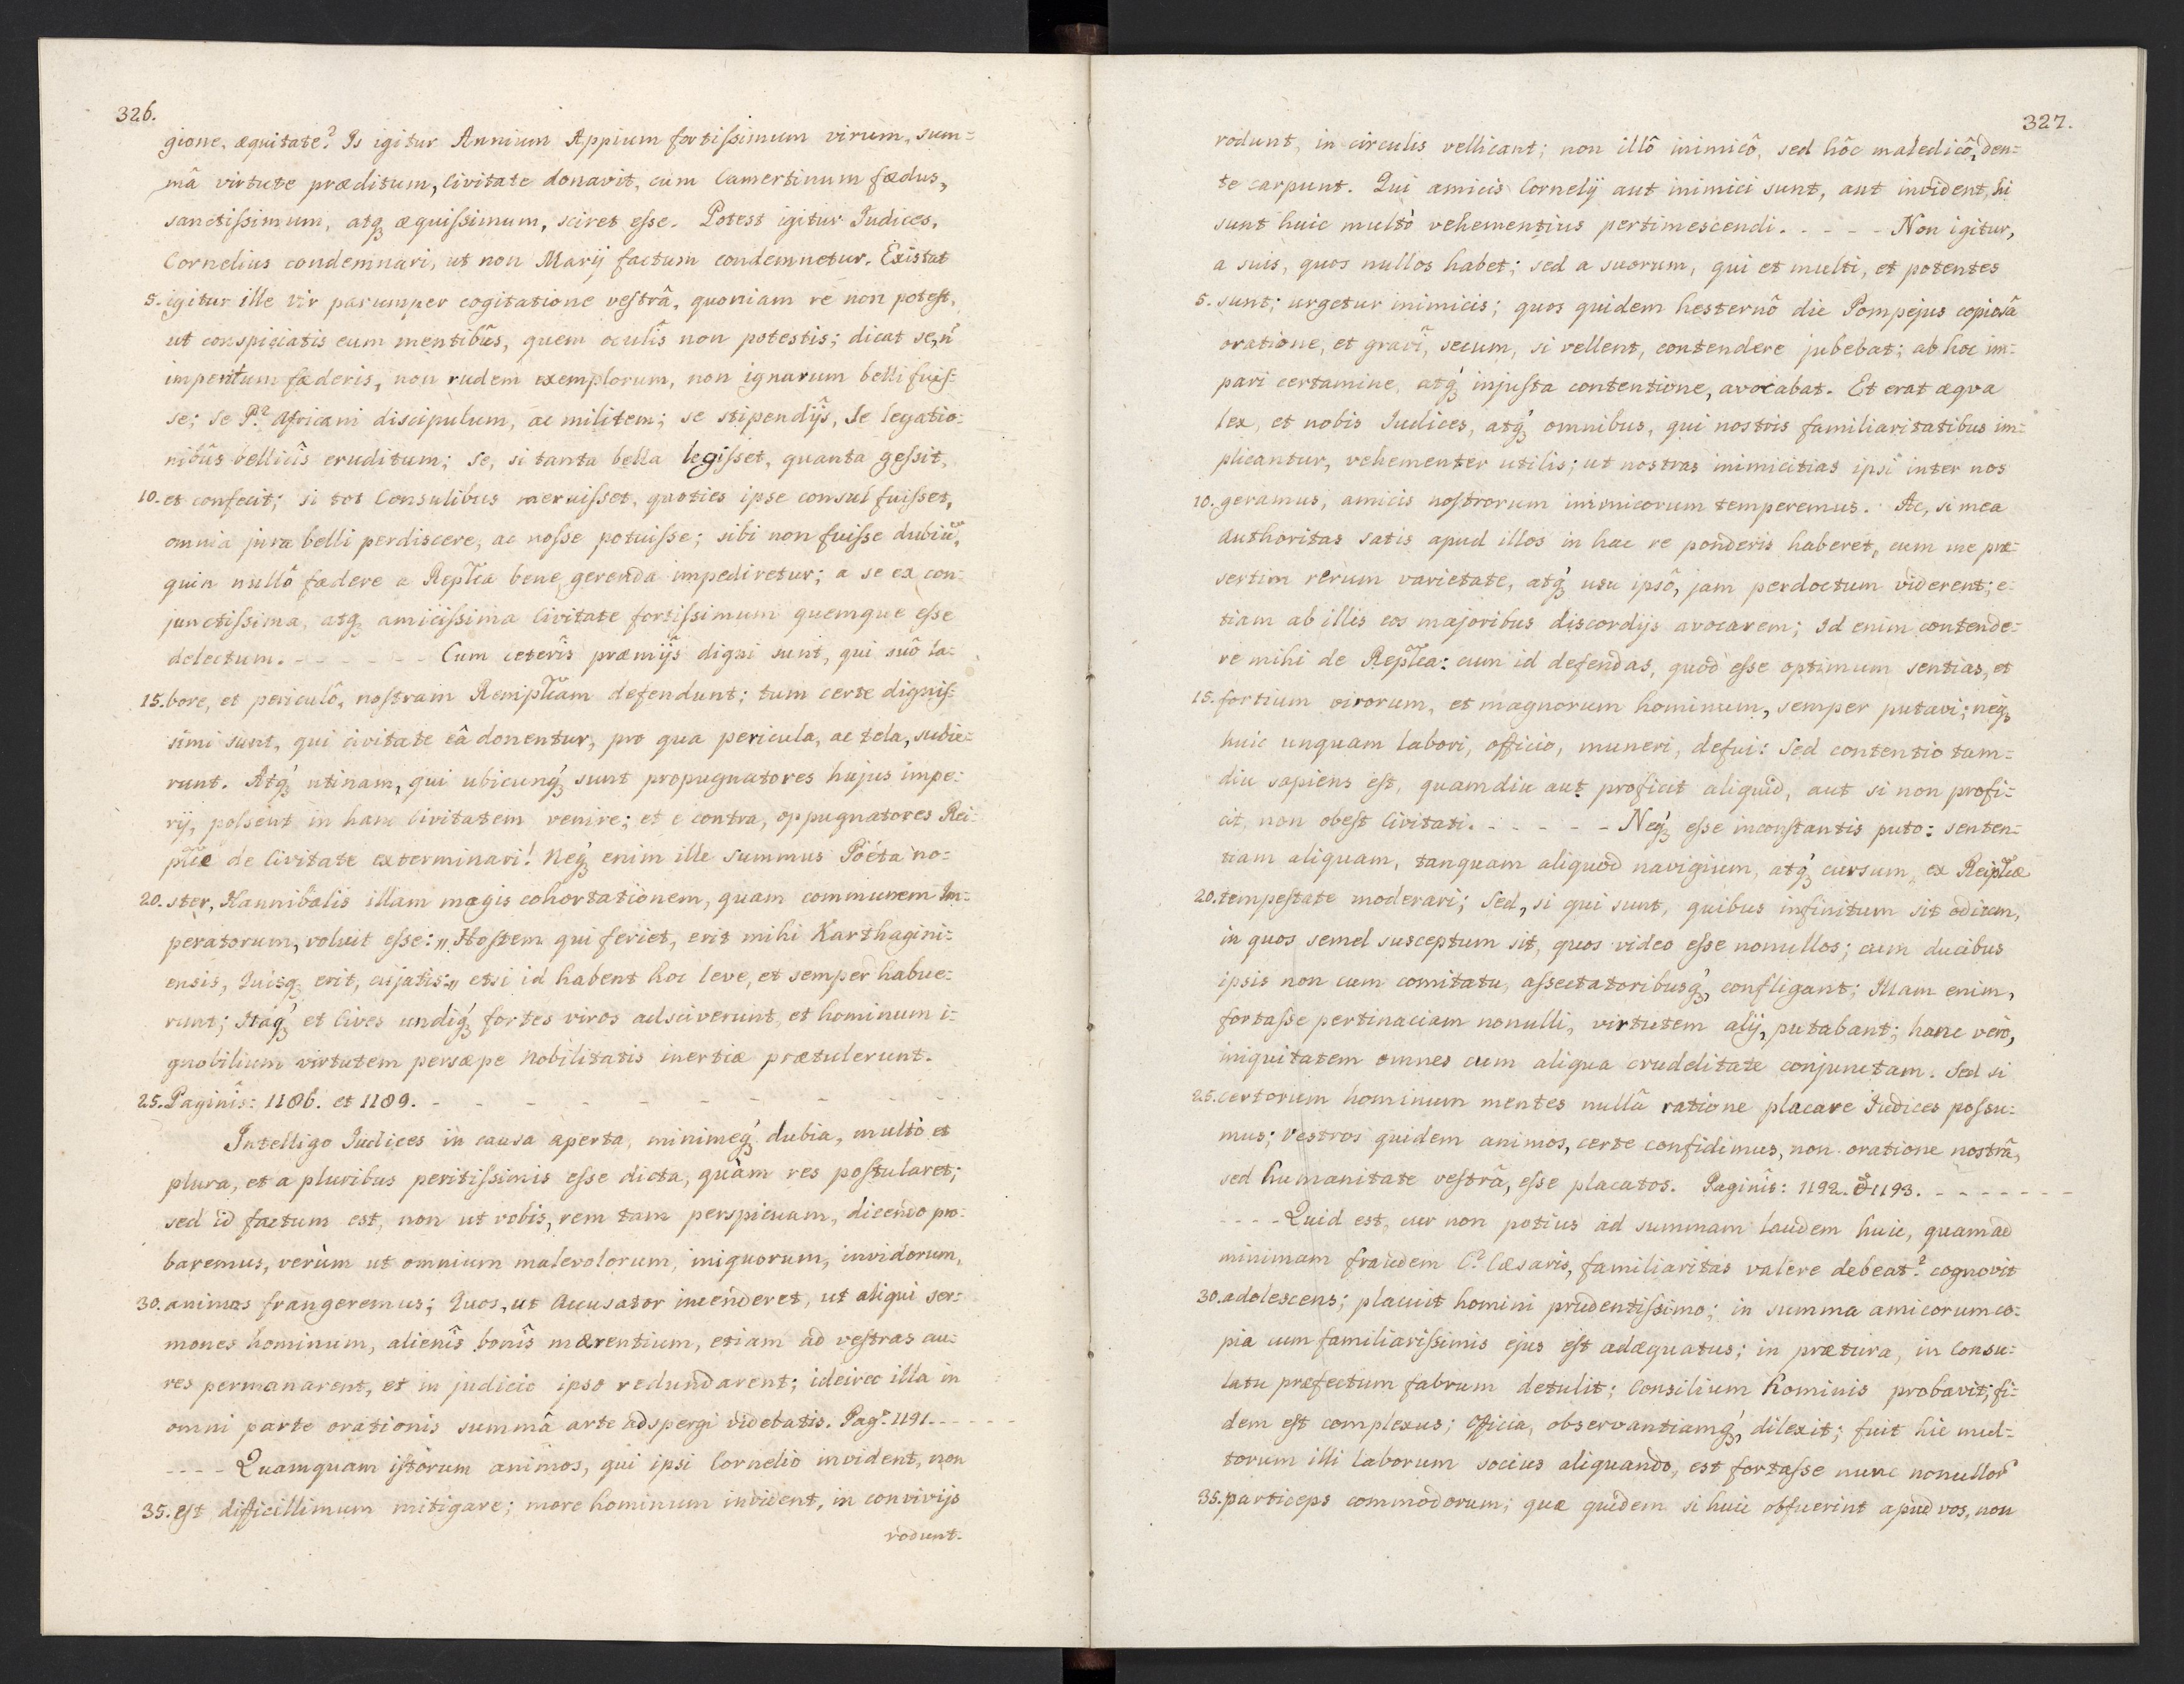 326.
gione, æquitate? Is igitur Annium Appium fortiſsimum virum, sum=
mâ virtute præditum, Civitate donavit, cùm Camertinum fædus,
sanctiſsimum, atq̨ æquiſsimum, sciret eſse. Potest igitur Iudices,
Cornelius condemnari, ut non Marij factum condemnetur. Existat
5. igitur ille vir parumper cogitatione veſtrâ, quoniam re non poteſt,
ut conspiciatis eum mentibûs, quem oculîs non potestis; dicat se, ñ
imperitum fæderis, non rudem exemplorum, non ignarum belli fuiſ=
se; se P.? Africani discipulum, ac militem; se stipendijs, se legatio=
nibûs bellicîs eruditum; se, si tanta bella legiſset, quanta geſsit,
10. et confecit; si tot Consulibus meruiſset, quoties ipse consul fuiſset,
omnia jura belli perdiscere, ac noſse potuiſse; sibi non fuiſse dubiũ,
quin nullô fædere a Repľca bene gerenda impediretur; a se ex con=
junctiſsima, atq̨ amiciſsima Civitate fortiſsimum quemque eſse
delectum. - - - - - - Cum ceterîs præmijs digni sunt, qui suô la=
15. bore, et periculô, noſtram Rempľcam defendunt; tum certe digniſ=
simi sunt, qui civitate eâ donentur, pro qua pericula, ac tela, subie=
runt. Atq̨ utinam, qui ubicunq̨ sunt propugnatores hujus impe=
rij, poſsent in hanc Civitatem venire; et e contra, oppugnatores Rei=
pľcæ de Civitate exterminari! Neq̨ enim ille summus Poéta no=
20. ster, Hannibalis illam magis cohortationem, quam communem Im=
peratorum, voluit eſse: „Hoſtem qui feriet, erit mihi Karthagini=
ensis, Quisq̨ erit, cujatis:„ etsi id habent hoc leve, et semper habue=
runt; Itaq̨ et Cives undiq̨ fortes viros adsciverunt, et hominum i=
gnobilium virtutem persæpe Nobilitatis inertiæ prætulerunt.
25. Paginîs: 1186. et 1189. - - - - - - - - -
Intelligo Iudices in causa aperta, minimeq̨ dubia, multò et
plura, et a pluribus peritiſsimis eſse dicta, quàm res poſtularet;
sed id factum est, non ut vobis, rem tam perspicuam, dicendo pro=
baremus, verùm ut omnium malevolorum, iniquorum, invidorum,
30. animos frangeremus; Quos, ut Accusator incenderet, ut aliqui ser=
mones hominum, alienîs bonîs mærentium, etiam ad veſtras au=
res permanarent, et in judicio ipso redundarent; idcirco illa in
omni parte orationis summâ arte adspergi videbatis. Pag. 1191. - - - - -
- - - - Quamquam iſtorum animos, qui ipsi Cornelio invident, non
35. eſt difficillimum mitigare; more hominum invident, in convivijs
rodunt.
327.
rodunt, in circulis vellicant; non illô inimicô, sed hôc maledicô, den=
te carpunt. Qui amicis Cornelij aut inimici sunt, aut invident, hi
sunt huic multò vehementius pertimescendi. - - - - Non igitur,
a suis, quos nullos habet; sed a suorum, qui et multi, et potentes
5. sunt; urgetur inimicis; quos quidem hesternô die Pompejus copiosâ
oratione, et gravi, secum, si vellent, contendere jubebat; ab hoc im=
pari certamine, atq̨ injuſta contentione, avocabat. Et erat æqva
lex, et nobis Iudices, atq̨ omnibus, qui nostris familiaritatibus im=
plicantur, vehementer utilis; ut nostras inimicitias ipsi inter nos
10. geramus, amicis noſtrorum inimicorum temperemus. Ac, si mea
Authoritas satis apud illos in hac re ponderis haberet, cum me præ=
sertim rerum varietate, atq̨ usu ipsô, jam perdoctum viderent; e=
tiam ab illis eos majoribus discordijs avocarem; Id enim contende=
re mihi de Repľca: cum id defendas, quod eſse optimum sentias, et
15. fortium virorum, et magnorum hominum, semper putavi; neq̨
huic unquam labori, officio, muneri, defui: Sed contentio tam=
diu sapiens eſt, quamdiu aut proficit aliquid, aut si non profi=
cit, non obeſt Civitati. - - - - - Neq̨ eſse inconſtantis puto: senten=
tiam aliquam, tanquam aliquod navigium, atq̨ cursum, ex Reipľcæ
20. tempeſtate moderari; Sed, si qui sunt, quibus infinitum sit odium,
in quos semel susceptum sit, quos video eſse nonullos; cum ducibus
ipsis non cum comitatu, aſsectatoribusq̨, confligant; Illam enim,
fortaſse pertinaciam nonulli, virtutem alij, putabant; hanc verò,
iniquitatem omnes cum aliqua crudelitate conjunctam. Sed si
25. certorum hominum mentes nullâ ratione placare Iudices poſsu=
mus; Vestros quidem animos, certe confidimus, non oratione nostrâ,
sed humanitate veſtrâ, eſse placatos. Paginîs: 1192. & 1193. - - - - - - -
- - - - Quid est, cur non potius ad summam laudem huic, quam ad
minimam fraudem C.? Cæsaris, familiaritas valere debeat? cognovit
30. adolescens; placuit homini prudentiſsimo; in summa amicorum co=
pia cum familiariſsimis ejus eſt adæquatus; in prætura, in Consu=
latu præfectum fabrum detulit; Consilium hominis probavit; fi=
dem eſt complexus; Officia, observantiamq̨, dilexit; fuit hic mul=
torum illi laborum socius aliquando, est fortaſse nunc nonullor̃
35. particeps commodorum; quæ quidem si huic obfuerint apud vos, non